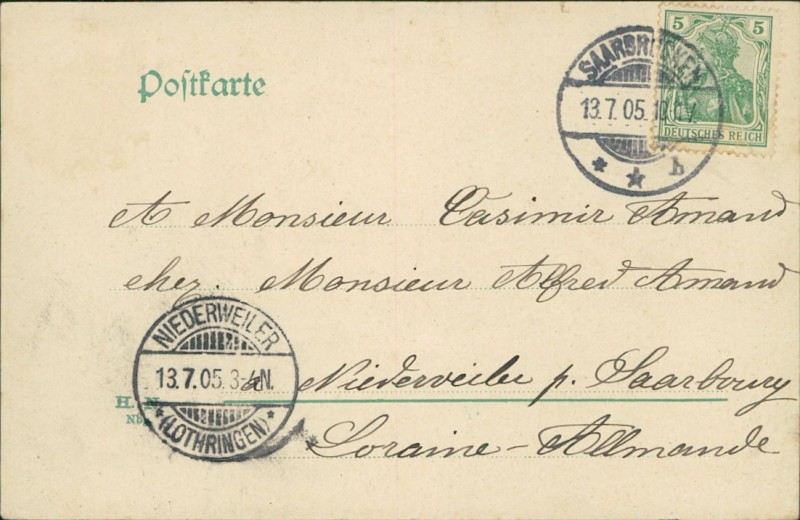 5 5
DEUTSCHES REICH
SAARBRÜCKEN
13.7.05. 10
* * h
Postkarte
A Monsieur Casimir Amand
chez. Monsieur Alfred Amand
à Niederveiler p. Saarbourg
Loraine-Allmande
NIEDERWEILER
13.7.05. 3-4N.
* (LOTHRINGEN) *
H. N.